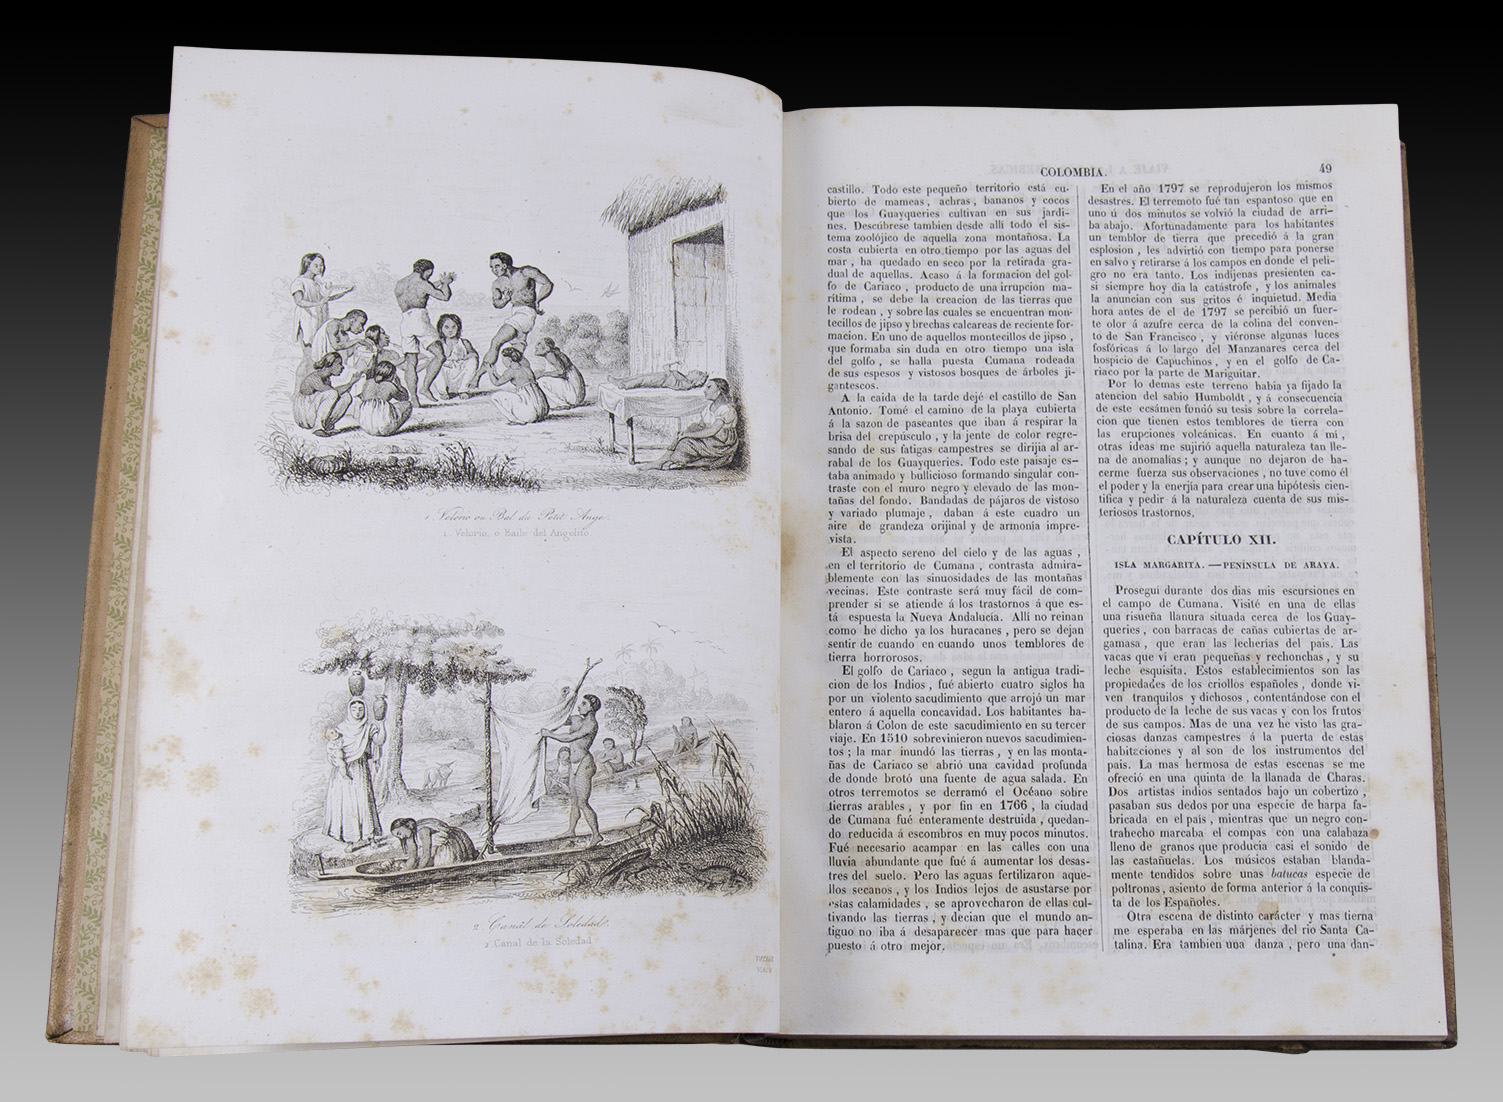 1 Velorio ou Bal du Petit Ange.
1. Velorio, ó Baile del Angolito
2 Canal de Soledad.
2 Canal de la Soledad
COLOMBIA.
49
castillo. Todo este pequeño territorio está cu-
bierto de mameas, achras, bananos y cocos
que los Guayqueries cultivan en sus jardi-
nes. Descúbrese tambien desde allí todo el sis-
tema zoolójico de aquella zona montañosa. La
costa cubierta en otro tiempo por las aguas del
mar, ha quedado en seco por la retirada gra-
dual de aquellas. Acaso á la formacion del gol-
fo de Cariaco, producto de una irrupcion ma-
rítima, se debe la creacion de las tierras que
le rodean, y sobre las cuales se encuentran mon-
tecillos de jipso y brechas calcareas de reciente for-
macion. En uno de aquellos montecillos de jipso,
que formaba sin duda en otro tiempo una isla
del golfo, se halla puesta Cumana rodeada
de sus espesos y vistosos bosques de árboles ji-
gantescos.
A la caida de la tarde dejé el castillo de San
Antonio. Tomé el camino de la playa cubierta
á la sazon de paseantes que iban á respirar la
brisa del crepúsculo, y la jente de color regre-
sando de sus fatigas campestres se dirijia al ar-
rabal de los Guayqueries. Todo este paisaje es-
taba animado y bullicioso formando singular con-
traste con el muro negro y elevado de las mon-
tañas del fondo. Bandadas de pájaros de vistoso
y variado plumaje, daban á este cuadro un
aire de grandeza orijinal y de armonía impre-
vista.
El aspecto sereno del cielo y de las aguas,
en el territorio de Cumana, contrasta admira-
blemente con las sinuosidades de las montañas
vecinas. Este contraste será muy fácil de com-
prender si se atiende á los trastornos á que es-
tá espuesta la Nueva Andalucía. Allí no reinan
como he dicho ya los huracanes, pero se dejan
sentir de cuando en cuando unos temblores de
tierra horrorosos.
El golfo de Cariaco, segun la antigua tradi-
cion de los Indios, fué abierto cuatro siglos ha
por un violento sacudimiento que arrojó un mar
entero á aquella concavidad. Los habitantes ha-
blaron á Colon de este sacudimiento en su tercer
viaje. En 1510 sobrevinieron nuevos sacudimien-
tos; la mar inundó las tierras, y en las monta-
ñas de Cariaco se abrió una cavidad profunda
de donde brotó una fuente de agua salada. En
otros terremotos se derramó el Océano sobre
tierras arables, y por fin en 1766, la ciudad
de Cumana fué enteramente destruida, quedan-
do reducida á escombros en muy pocos minutos.
Fué necesario acampar en las calles con una
lluvia abundante que fué á aumentar los desas-
tres del suelo. Pero las aguas fertilizaron aque-
llos secanos, y los Indios lejos de asustarse por
estas calamidades, se aprovecharon de ellas cul-
tivando las tierras, y decian que el mundo an-
tiguo no iba á desaparecer mas que para hacer
puesto á otro mejor.
En el año 1797 se reprodujeron los mismos
desastres. El terremoto fué tan espantoso que en
uno ú dos minutos se volvió la ciudad de arri-
ba abajo. Afortunadamente para los habitantes
un temblor de tierra que precedió á la gran
esplosion, les advirtió con tiempo para ponerse
en salvo y retirarse á los campos en donde el peli-
gro no era tanto. Los indíjenas presienten ca-
si siempre hoy dia la catástrofe, y los animales
la anuncian con sus gritos é inquietud. Media
hora antes de el de 1797 se percibió un fuer-
te olor á azufre cerca de la colina del conven-
to de San Francisco, y viéronse algunas luces
fosfóricas á lo largo del Manzanares cerca del
hospicio de Capuchinos, y en el golfo de Ca-
riaco por la parte de Mariguitar.
Por lo demas este terreno habia ya fijado la
atencion del sabio Humboldt, y á consecuencia
de este ecsámen fundó su tesis sobre la correla-
cion que tienen estos temblores de tierra con
las erupciones volcánicas. En cuanto á mí,
otras ideas me sujirió aquella naturaleza tan lle-
na de anomalías; y aunque no dejaron de ha-
cerme fuerza sus observaciones, no tuve como él
el poder y la enerjía para crear una hipótesis cien-
tífica y pedir á la naturaleza cuenta de sus mis-
teriosos trastornos.
CAPÍTULO XII.
ISLA MARGARITA. — PENÍNSULA DE ARAYA.
Proseguí durante dos dias mis escursiones en
el campo de Cumana. Visité en una de ellas
una risueña llanura situada cerca de los Guay-
queries, con barracas de cañas cubiertas de ar-
gamasa, que eran las lecherías del pais. Las
vacas que ví eran pequeñas y rechonchas, y su
leche esquisita. Estos establecimientos son las
propiedades de los criollos españoles, donde vi-
ven tranquilos y dichosos, contentándose con el
producto de la leche de sus vacas y con los frutos
de sus campos. Mas de una vez he visto las gra-
ciosas danzas campestres á la puerta de estas
habitaciones y al son de los instrumentos del
pais. La mas hermosa de estas escenas se me
ofreció en una quinta de la llanada de Charas.
Dos artistas indios sentados bajo un cobertizo,
pasaban sus dedos por una especie de harpa fa-
bricada en el pais, mientras que un negro con-
trahecho marcaba el compas con una calabaza
lleno de granos que producia casi el sonido de
las castañuelas. Los músicos estaban blanda-
mente tendidos sobre unas batucas especie de
poltronas, asiento de forma anterior á la conquis-
ta de los Españoles.
Otra escena de distinto carácter y mas tierna
me esperaba en las márjenes del rio Santa Ca-
talina. Era tambien una danza, pero una dan-